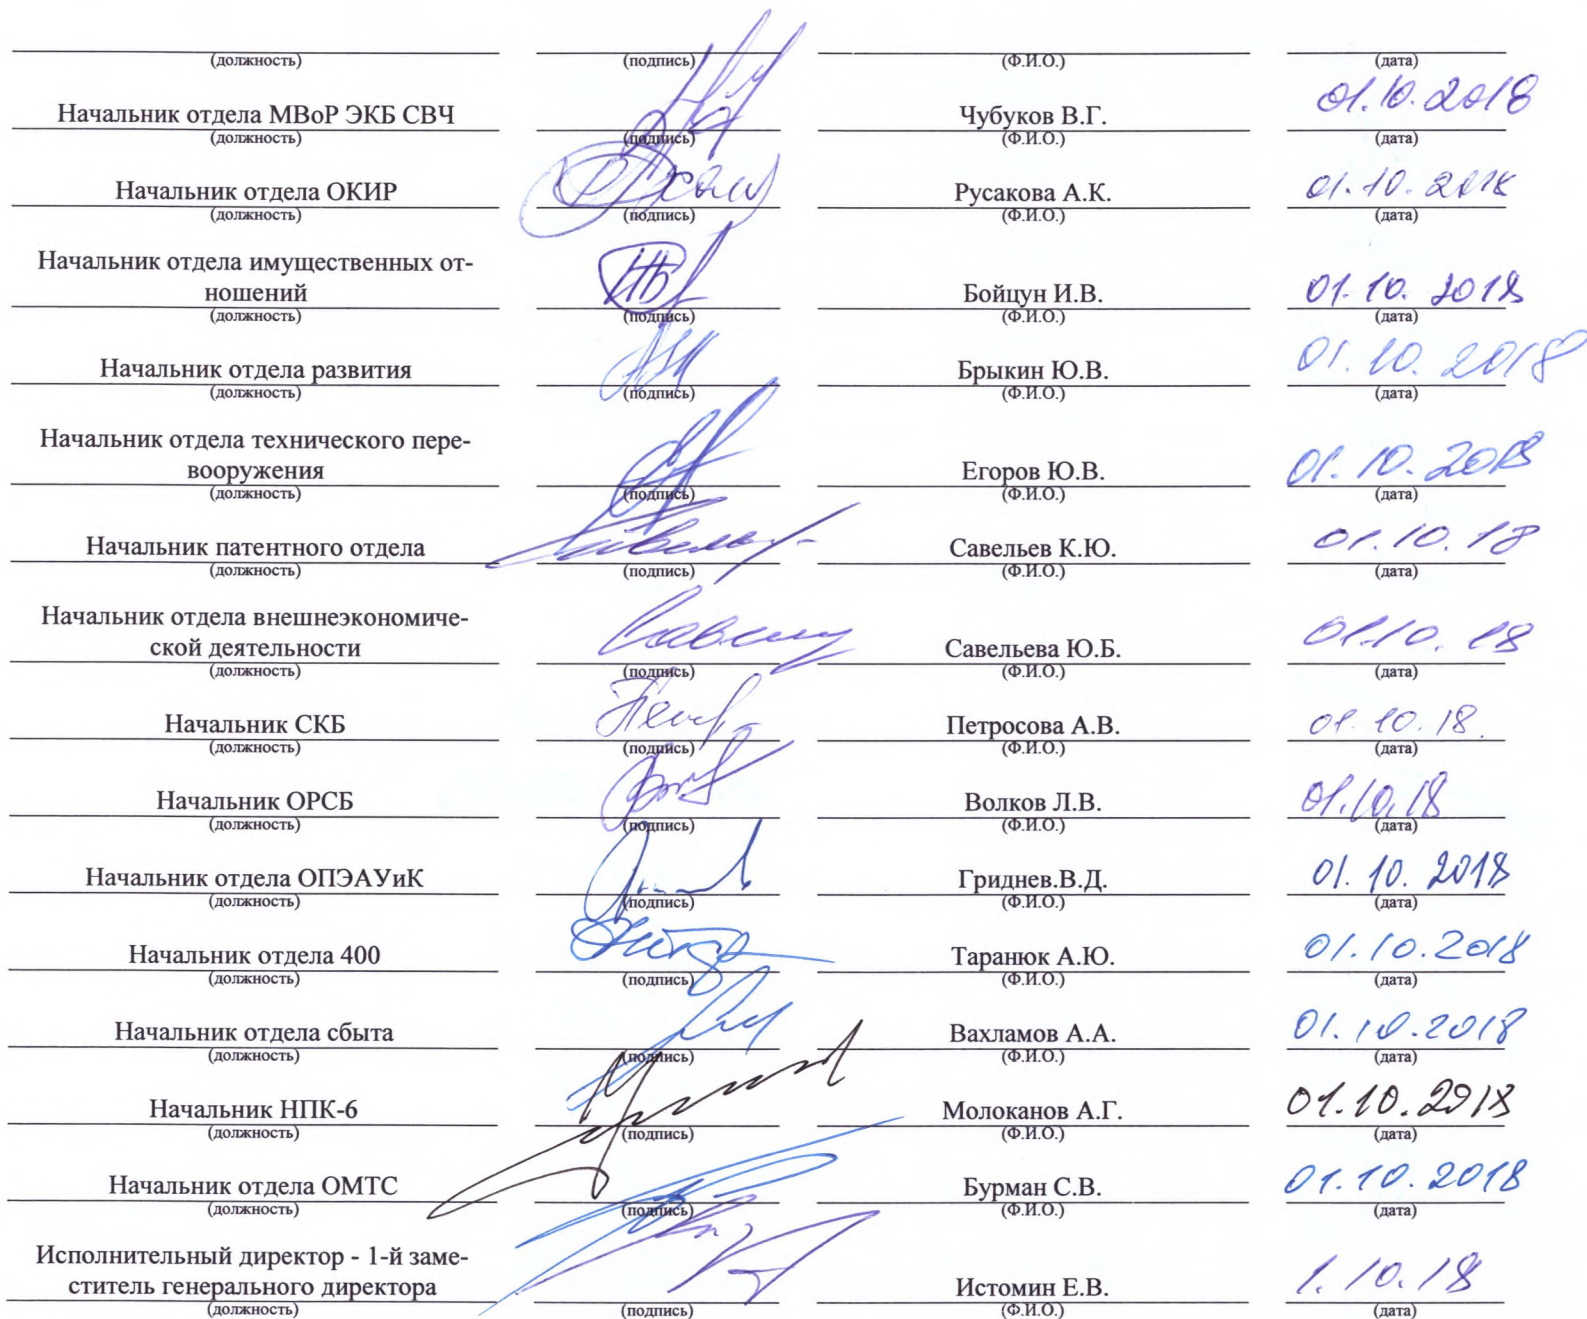 (должность) (подпись) (Ф.И.О.) (дата)
Начальник отдела МВоР ЭКБ СВЧ Чубуков В.Г. 01.10.2018
(должность) (подпись) (Ф.И.О.) (дата)
Начальник отдела ОКИР Русакова А.К. 01.10.2018
(должность) (подпись) (Ф.И.О.) (дата)
Начальник отдела имущественных от-
ношений Бойцун И.В. 01.10.2018
(должность) (подпись) (Ф.И.О.) (дата)
Начальник отдела развития Брыкин Ю.В. 01.10.2018
(должность) (подпись) (Ф.И.О.) (дата)
Начальник отдела технического пере-
вооружения Егоров Ю.В. 01.10.2018
(должность) (подпись) (Ф.И.О.) (дата)
Начальник патентного отдела Савельев К.Ю. 01.10.18
(должность) (подпись) (Ф.И.О.) (дата)
Начальник отдела внешнеэкономиче-
ской деятельности Савельева Ю.Б. 01.10.18
(должность) (подпись) (Ф.И.О.) (дата)
Начальник СКБ Петросова А.В. 01.10.18.
(должность) (подпись) (Ф.И.О.) (дата)
Начальник ОРСБ Волков Л.В. 01.10.18
(должность) (подпись) (Ф.И.О.) (дата)
Начальник отдела ОПЭАУиК Гриднев.В.Д. 01.10.2018
(должность) (подпись) (Ф.И.О.) (дата)
Начальник отдела 400 Таранюк А.Ю. 01.10.2018
(должность) (подпись) (Ф.И.О.) (дата)
Начальник отдела сбыта Вахламов А.А. 01.10.2018
(должность) (подпись) (Ф.И.О.) (дата)
Начальник НПК-6 Молоканов А.Г. 01.10.2018
(должность) (подпись) (Ф.И.О.) (дата)
Начальник отдела ОМТС Бурман С.В. 01.10.2018
(должность) (подпись) (Ф.И.О.) (дата)
Исполнительный директор - 1-й заме-
ститель генерального директора Истомин Е.В. 1.10.18
(должность) (подпись) (Ф.И.О.) (дата)